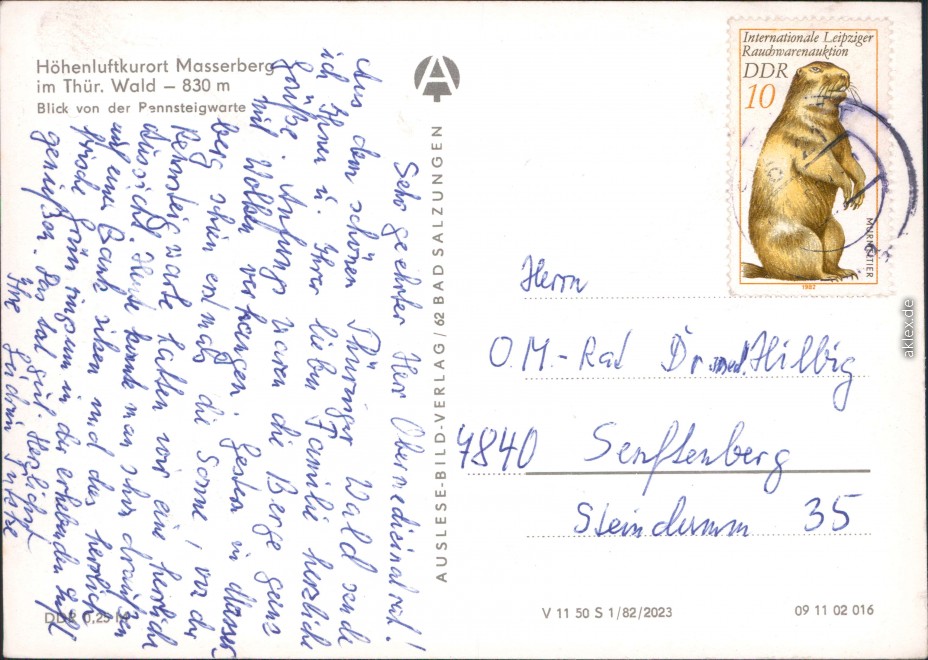 Höhenluftkurort Masserberg
im Thür. Wald – 830 m
Blick von der Rennsteigwarte
Sehr geehrter Herr Obermedizinalrat!
Aus dem schönen Thüringer Wald sende
ich Ihnen u. Ihrer lieben Familie herzliche
Grüße. Anfangs waren die Berge ganz
mit Wolken verhangen. Gestern in Masser-
berg schien erstmals die Sonne, von der
Rennsteigwarte hatten wir eine herrliche
Aussicht. Heute konnte man schon draußen
auf einer Bank sitzen und das herrliche
frische Grün ringsum in der erhebenden Luft
genießen. Das tat gut. Herzlichst
Ihre
AUSLESE-BILD-VERLAG / 62 BAD SALZUNGEN
Internationale Leipziger
Rauchwarenauktion
DDR
10
MURMELTIER
1982
Herrn
O.M.-Rat Dr. med. Hilbig
7840 Senftenberg
Steindamm 35
DDR 0,25 M
V 11 50 S 1/82/2023
09 11 02 016
aklex.de ©